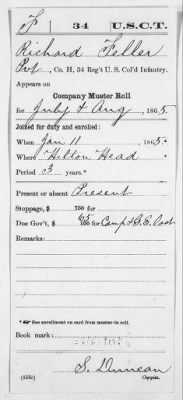 F 34 U.S.C.T.
Richard Feller
Pvt, Co. H, 34 Reg't U. S. Col'd Infantry.
Appears on
Company Muster Roll
for July & Aug, 1865.
Joined for duty and enrolled:
When Jan 11, 1865.*
Where Hilton Head
Period 3 years.*
Present or absent Present
Stoppage, $ 100 for
Due Gov't, $ 65/100 for Camp & G. E. lost
Remarks:
*See enrollment on card from muster-in roll.
Book mark:
S. Duncan
(358c) Copyist.